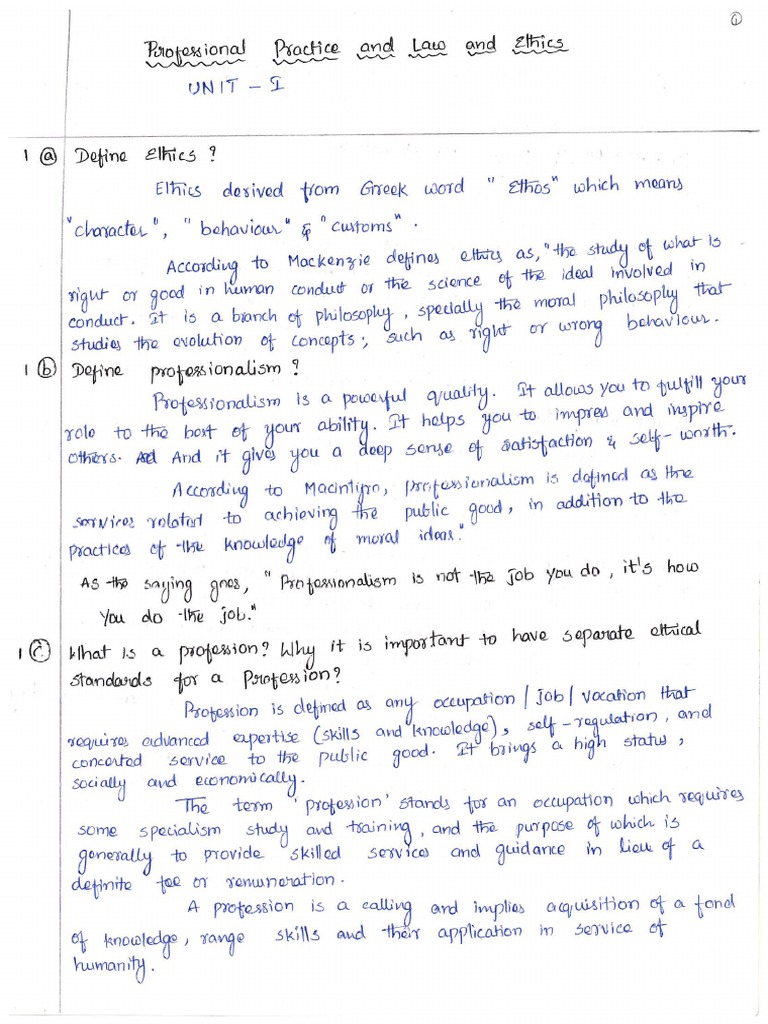 ①
Professional Practice and Law and Ethics
UNIT - I
1 ⓐ Define Ethics ?
Ethics derived from Greek word " Ethos" which means
"character", " behaviour" & " customs" .
According to Mackenzie defines ethics as, "the study of what is
right or good in human conduct or the science of the ideal involved in
conduct. It is a branch of philosophy, specially the moral philosophy that
studies the evolution of concepts; such as right or wrong behaviour.
1 ⓑ Define professionalism ?
Professionalism is a powerful quality. It allows you to fulfill your
role to the best of your ability. It helps you to impress and inspire
others. And it gives you a deep sense of satisfaction & self-worth.
According to Macintyre, professionalism is defined as the
services related to achieving the public good, in addition to the
practices of the knowledge of moral ideas."
As the saying goes, "Professionalism is not the job you do, it's how
you do the job."
1 ⓒ What is a profession? Why it is important to have separate ethical
standards for a Profession?
Profession is defined as any occupation / job / vocation that
requires advanced expertise (skills and knowledge), self-regulation, and
concerted service to the public good. It brings a high status,
socially and economically.
The term 'profession' stands for an occupation which requires
some specialism study and training, and the purpose of which is
generally to provide skilled services and guidance in lieu of a
definite fee or remuneration.
A profession is a calling and implies acquisition of a fond
of knowledge, range skills and their application in service of
humanity.